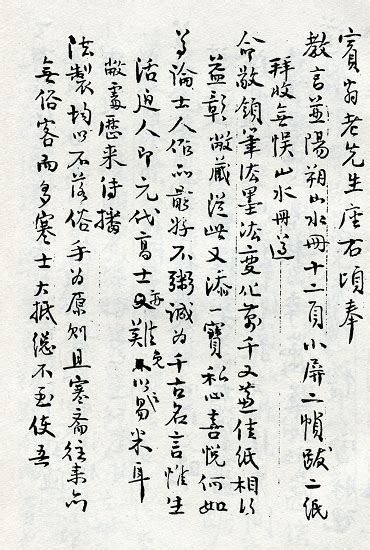 賓翁老先生座右頃奉
教言並陽朔山水冊十二頁小屏二幀跋二紙
拜收無悮山水冊遵
命敬領筆法墨法變化萬千又 佳紙相得
益彰敝藏從此又添一寶私心喜悅何如
尊論士人作品最好不粥誠為千古名言惟生
活迫人即元代高士 難免 以之易米耳
敝處歷来待播
法製均以不落俗手為原則且寒齋往来亦
無俗客而多寒士大抵總不至使吾